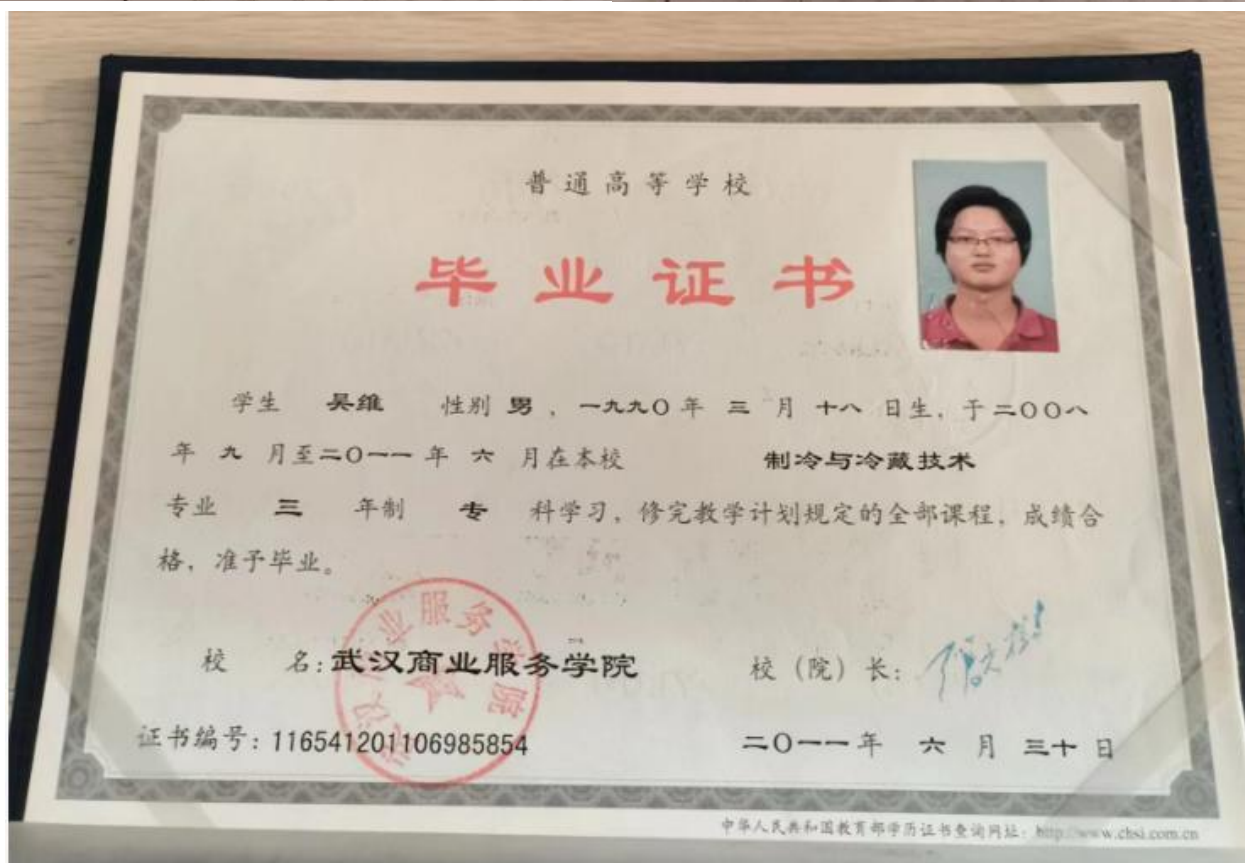 普通高等学校
毕业证书
学生 吴维 性别 男，一九九〇年 三 月 十八 日生，于二〇〇八
年 九 月至二〇一一 年 六 月在本校 制冷与冷藏技术
专业 三 年制 专 科学习，修完教学计划规定的全部课程，成绩合
格，准予毕业。
武汉商业服务学院
校 名：武汉商业服务学院 校（院）长：
证书编号：116541201106985854 二〇一一年 六 月 三十 日
中华人民共和国教育部学历证书查询网址：http://www.chsi.com.cn